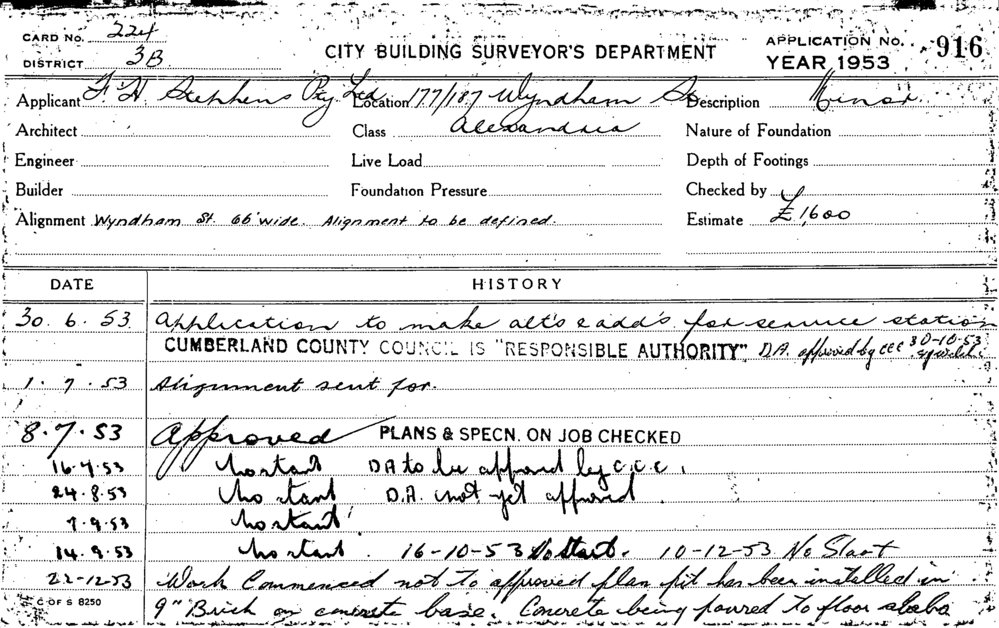 CARD No. 224
DISTRICT 3B
CITY BUILDING SURVEYOR'S DEPARTMENT
APPLICATION No. 916
YEAR 1953
Applicant F. H. Stephens Pty Ltd Location 177/187 Wyndham St Description Minor.
Architect Class Alexandria Nature of Foundation
Engineer Live Load Depth of Footings
Builder Foundation Pressure Checked by
Alignment Wyndham St. 66' wide. Alignment to be defined. Estimate £1,600
DATE HISTORY
30.6.53 Application to make alt's & add's for service station
CUMBERLAND COUNTY COUNCIL IS "RESPONSIBLE AUTHORITY" D.A. approved by CCC 30-10-53
1.7.53 Alignment sent for.
8.7.53 Approved PLANS & SPECN. ON JOB CHECKED
16.7.53 No start DA to be approved by C.C.C.
24.8.53 No start D.A. not yet approved
7.9.53 No start
14.9.53 No start. 16-10-53 No Start. 10-12-53 No Start
22-12-53 Work Commenced not to approved plan pit has been installed in
C OF S 8250
9" Brick on concrete base. Concrete being poured to floor slabs